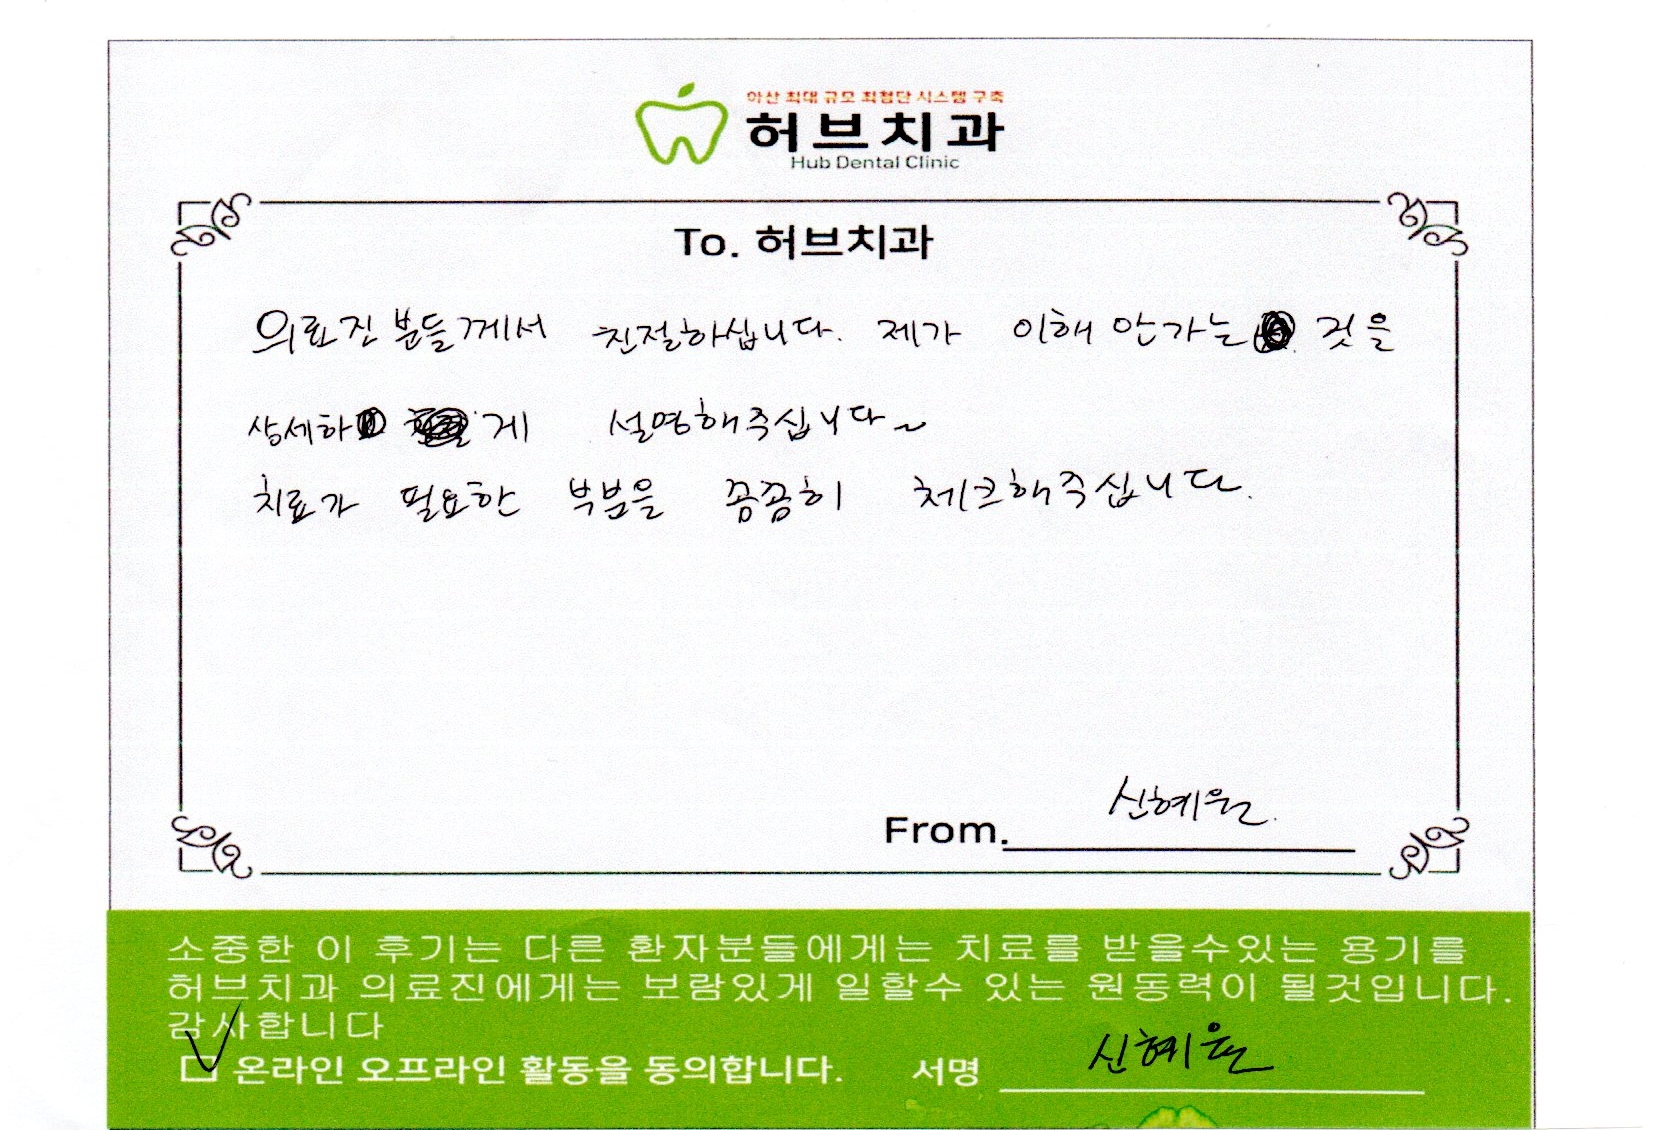 아산 최대 규모 최첨단 시스템 구축
허브치과
Hub Dental Clinic
To. 허브치과
의료진 분들께서 친절하십니다. 제가 이해 안가는 것을
상세하 게 설명해주십니다~
치료가 필요한 부분을 꼼꼼히 체크해주십니다.
신혜원.
From.
소중한 이 후기는 다른 환자분들에게는 치료를 받을수있는 용기를
허브치과 의료진에게는 보람있게 일할수 있는 원동력이 될것입니다.
감사합니다
온라인 오프라인 활동을 동의합니다. 서명 신혜원